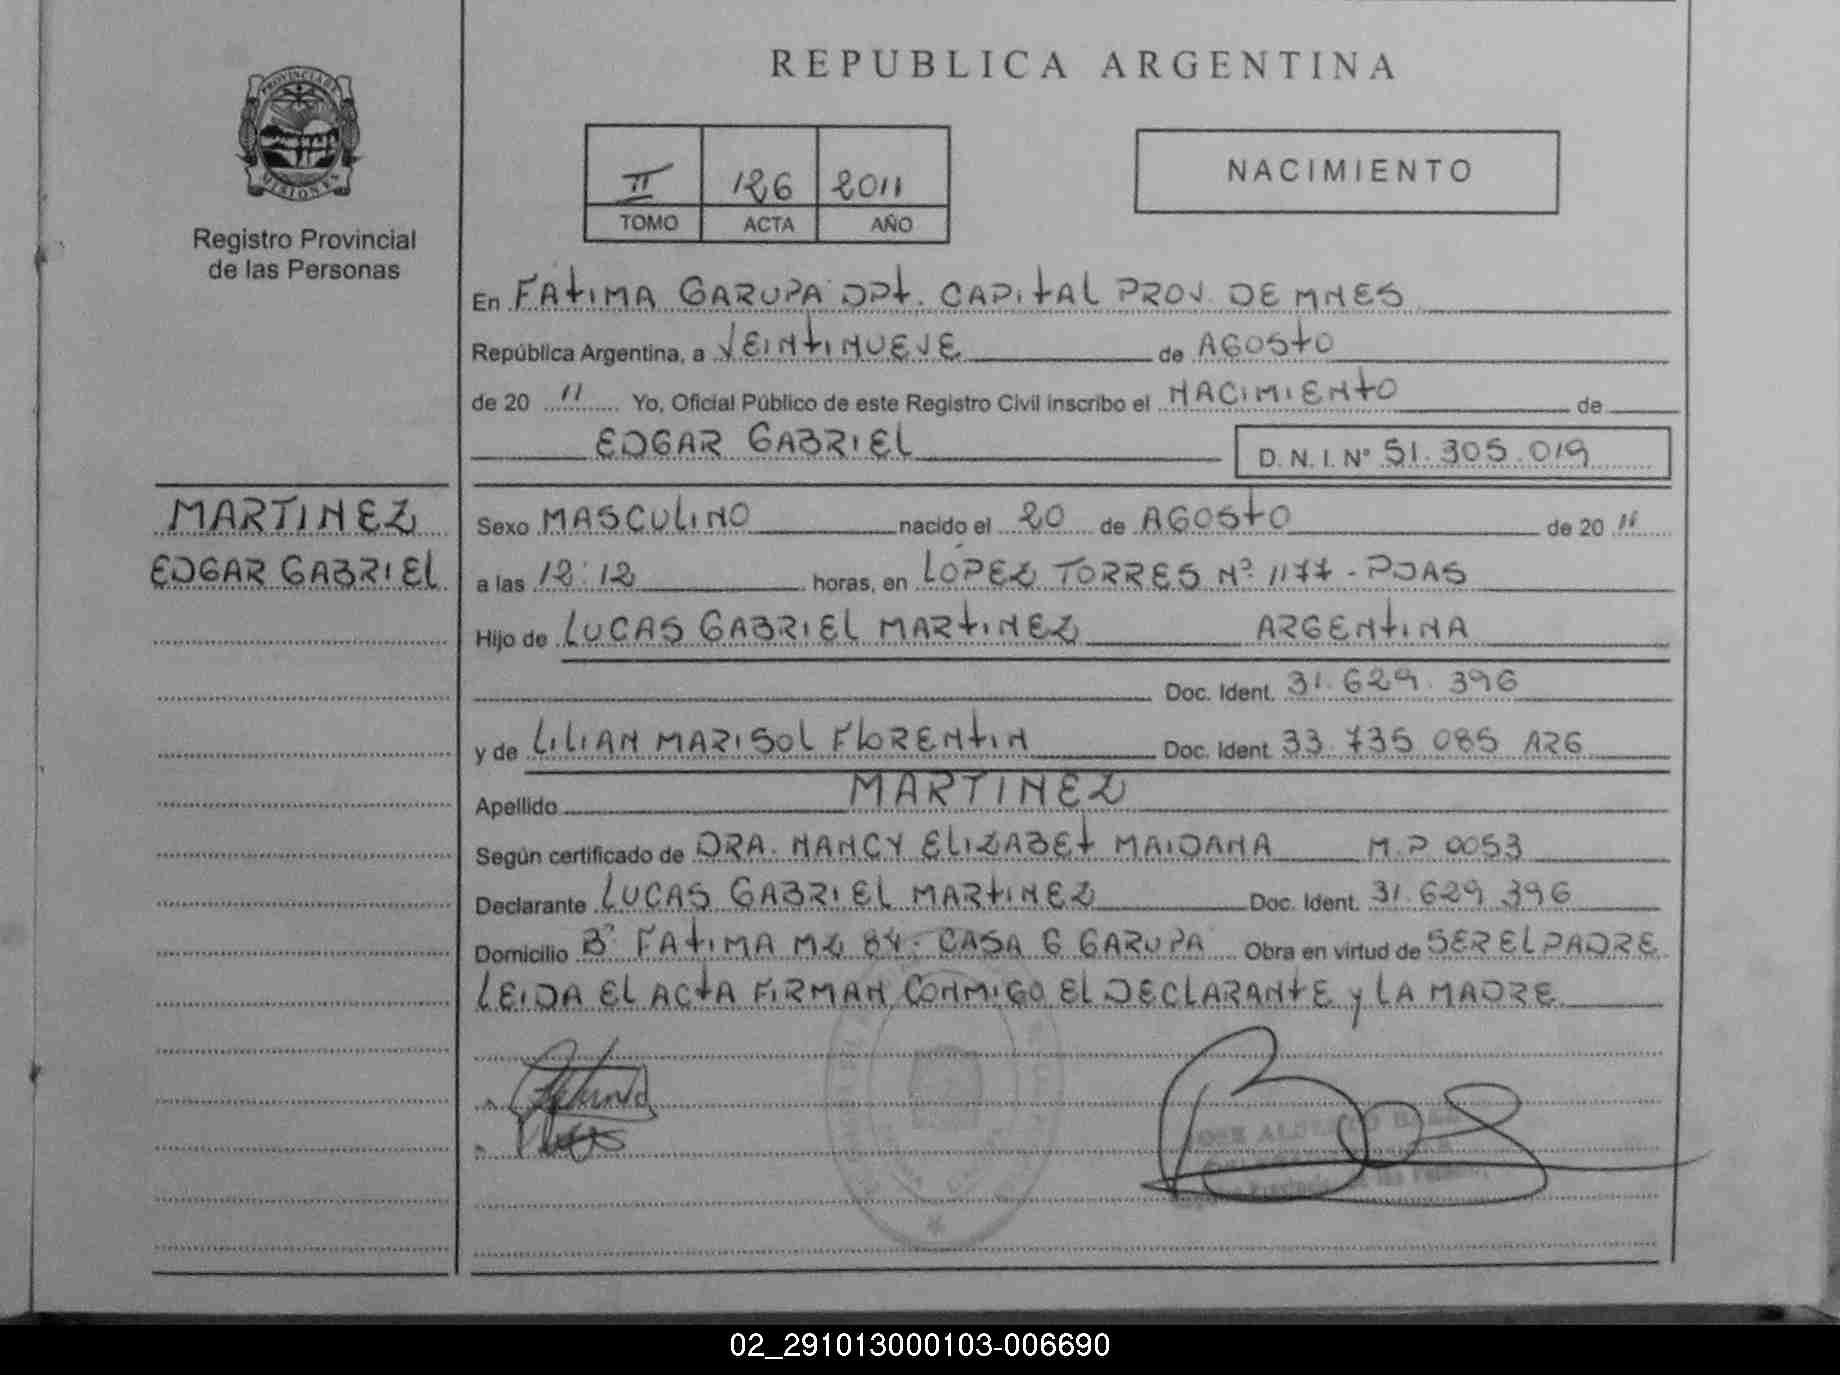 PROVINCIA DE
MISIONES
Registro Provincial
de las Personas
MARTINEZ
EDGAR GABRIEL
REPUBLICA ARGENTINA
II 126 2011
TOMO ACTA AÑO
NACIMIENTO
En FATIMA GARUPA DPT. CAPITAL PROV. DE MNES
República Argentina, a VEINTINUEVE de AGOSTO
de 20 11 Yo, Oficial Público de este Registro Civil inscribo el NACIMIENTO de
EDGAR GABRIEL D.N.I. N° 51.305.019
Sexo MASCULINO nacido el 20 de AGOSTO de 20 11
a las 12:12 horas, en LÓPEZ TORRES Nº 1177 - PDAS
Hijo de LUCAS GABRIEL MARTINEZ ARGENTINA
Doc. Ident. 31.629.396
y de LILIAN MARISOL FLORENTIN Doc. Ident. 33.735.085 ARG
Apellido MARTINEZ
Según certificado de DRA. NANCY ELIZABET MAIDANA M.P 0053
Declarante LUCAS GABRIEL MARTINEZ Doc. Ident. 31.629.396
Domicilio Bº FATIMA MZ 84 - CASA 6 GARUPA Obra en virtud de SER EL PADRE
LEIDA EL ACTA FIRMAN CONMIGO EL DECLARANTE Y LA MADRE
JOSE ALBERTO
02_291013000103-006690